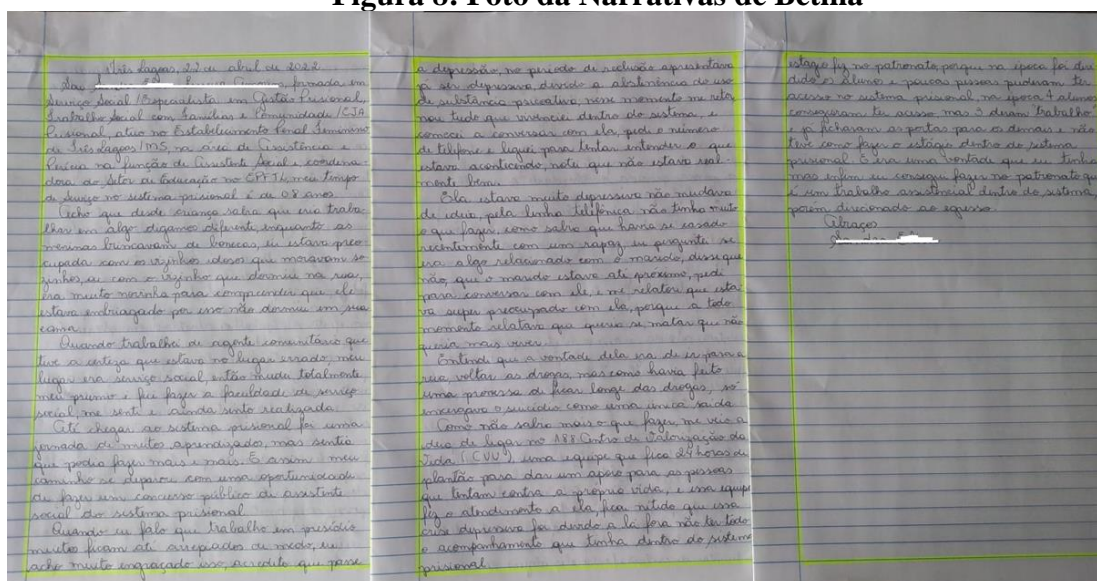 Figura 8: Foto da Narrativas de Betina
Três Lagoas, 22 de abril de 2022
Sou formada em
Serviço Social / Especialista em Gestão Prisional,
Trabalho Social com Famílias e Comunidade / CJA
Prisional, atuo no Estabelecimento Penal Feminino
de Três Lagoas/MS, na área de Assistência e
Perícia na função de Assistente Social e coordena-
dora do Setor de Educação no EPFTL, meu tempo
de serviço no sistema prisional é de 08 anos.
Acho que desde criança sabia que iria traba-
lhar em algo digamos diferente enquanto as
meninas brincavam de bonecas, eu estava preo-
cupada com os vizinhos idosos que moravam so-
zinhos, ou com o vizinho que dormiu na rua,
era muito novinha para compreender que ele
estava embriagado por isso não dormiu em sua
cama.
Quando trabalhei de agente comunitário que
tive a certeza que estava no lugar errado, meu
lugar era serviço social, então mudei totalmente
meu prumo e fui fazer a faculdade de serviço
social, me senti e ainda sinto realizada.
Até chegar ao sistema prisional foi uma
jornada de muitos aprendizados, mas sentia
que podia fazer mais e mais. E assim meu
caminho se deparou com uma oportunidade
de fazer um concurso público de assistente
social do sistema prisional.
Quando eu falo que trabalho em presídio
muitos ficam até arrepiados de medo, eu
acho muito engraçado isso, acredito que passe
a depressão, no período de reclusão apresentava
já ser depressiva, devido a abstinência do uso
de substância psicoativa, nesse momento me reto
nou tudo que vivenciei dentro do sistema, e
comecei a conversar com ela, pedi o número
de telefone e liguei para tentar entender o que
estava acontecendo, notei que não estava real-
mente bem.
Ela estava muito depressiva não mudava
de ideia, pela linha telefônica não tinha muito
o que fazer, como sabia que havia se casado
recentemente com um rapaz, eu pergunto se
era algo relacionado com o marido, disse que
não, que o marido estava até próximo, pedi
para conversar com ele, e me relatou que esta-
va super preocupado com ela, porque a todo
momento relatava que queria se matar que não
queria mais viver.
Entendi que a vontade dela era de ir para a
rua, voltar as drogas, mas como havia feito
uma promessa de ficar longe das drogas, só
enxergava o suicídio como uma única saída
Como não sabia mais o que fazer me veio a
ideia de ligar no 188 Centro de Valorização da
Vida (CVV), uma equipe que fica 24 horas de
plantão para dar um apoio para as pessoas
que tentam contra a própria vida, e essa equipe
fez o atendimento a ela, ficou nítido que essa
crise depressiva foi devido a lá fora não ter todo
o acompanhamento que tinha dentro do sistema
prisional.
estágio fiz no patronato, porque na época foi divi
dido os alunos e poucas pessoas puderam ter
acesso no sistema prisional, na época 4 alunos
conseguiram ter acesso mas 3 deram trabalho
e já fecharam as portas para os demais e não
tive como fazer o estágio dentro do sistema
prisional. E era uma vontade que eu tinha
mas enfim eu consegui fazer no patronato que
é um trabalho assistencial dentro do sistema,
porém direcionado ao egresso.
Abraços